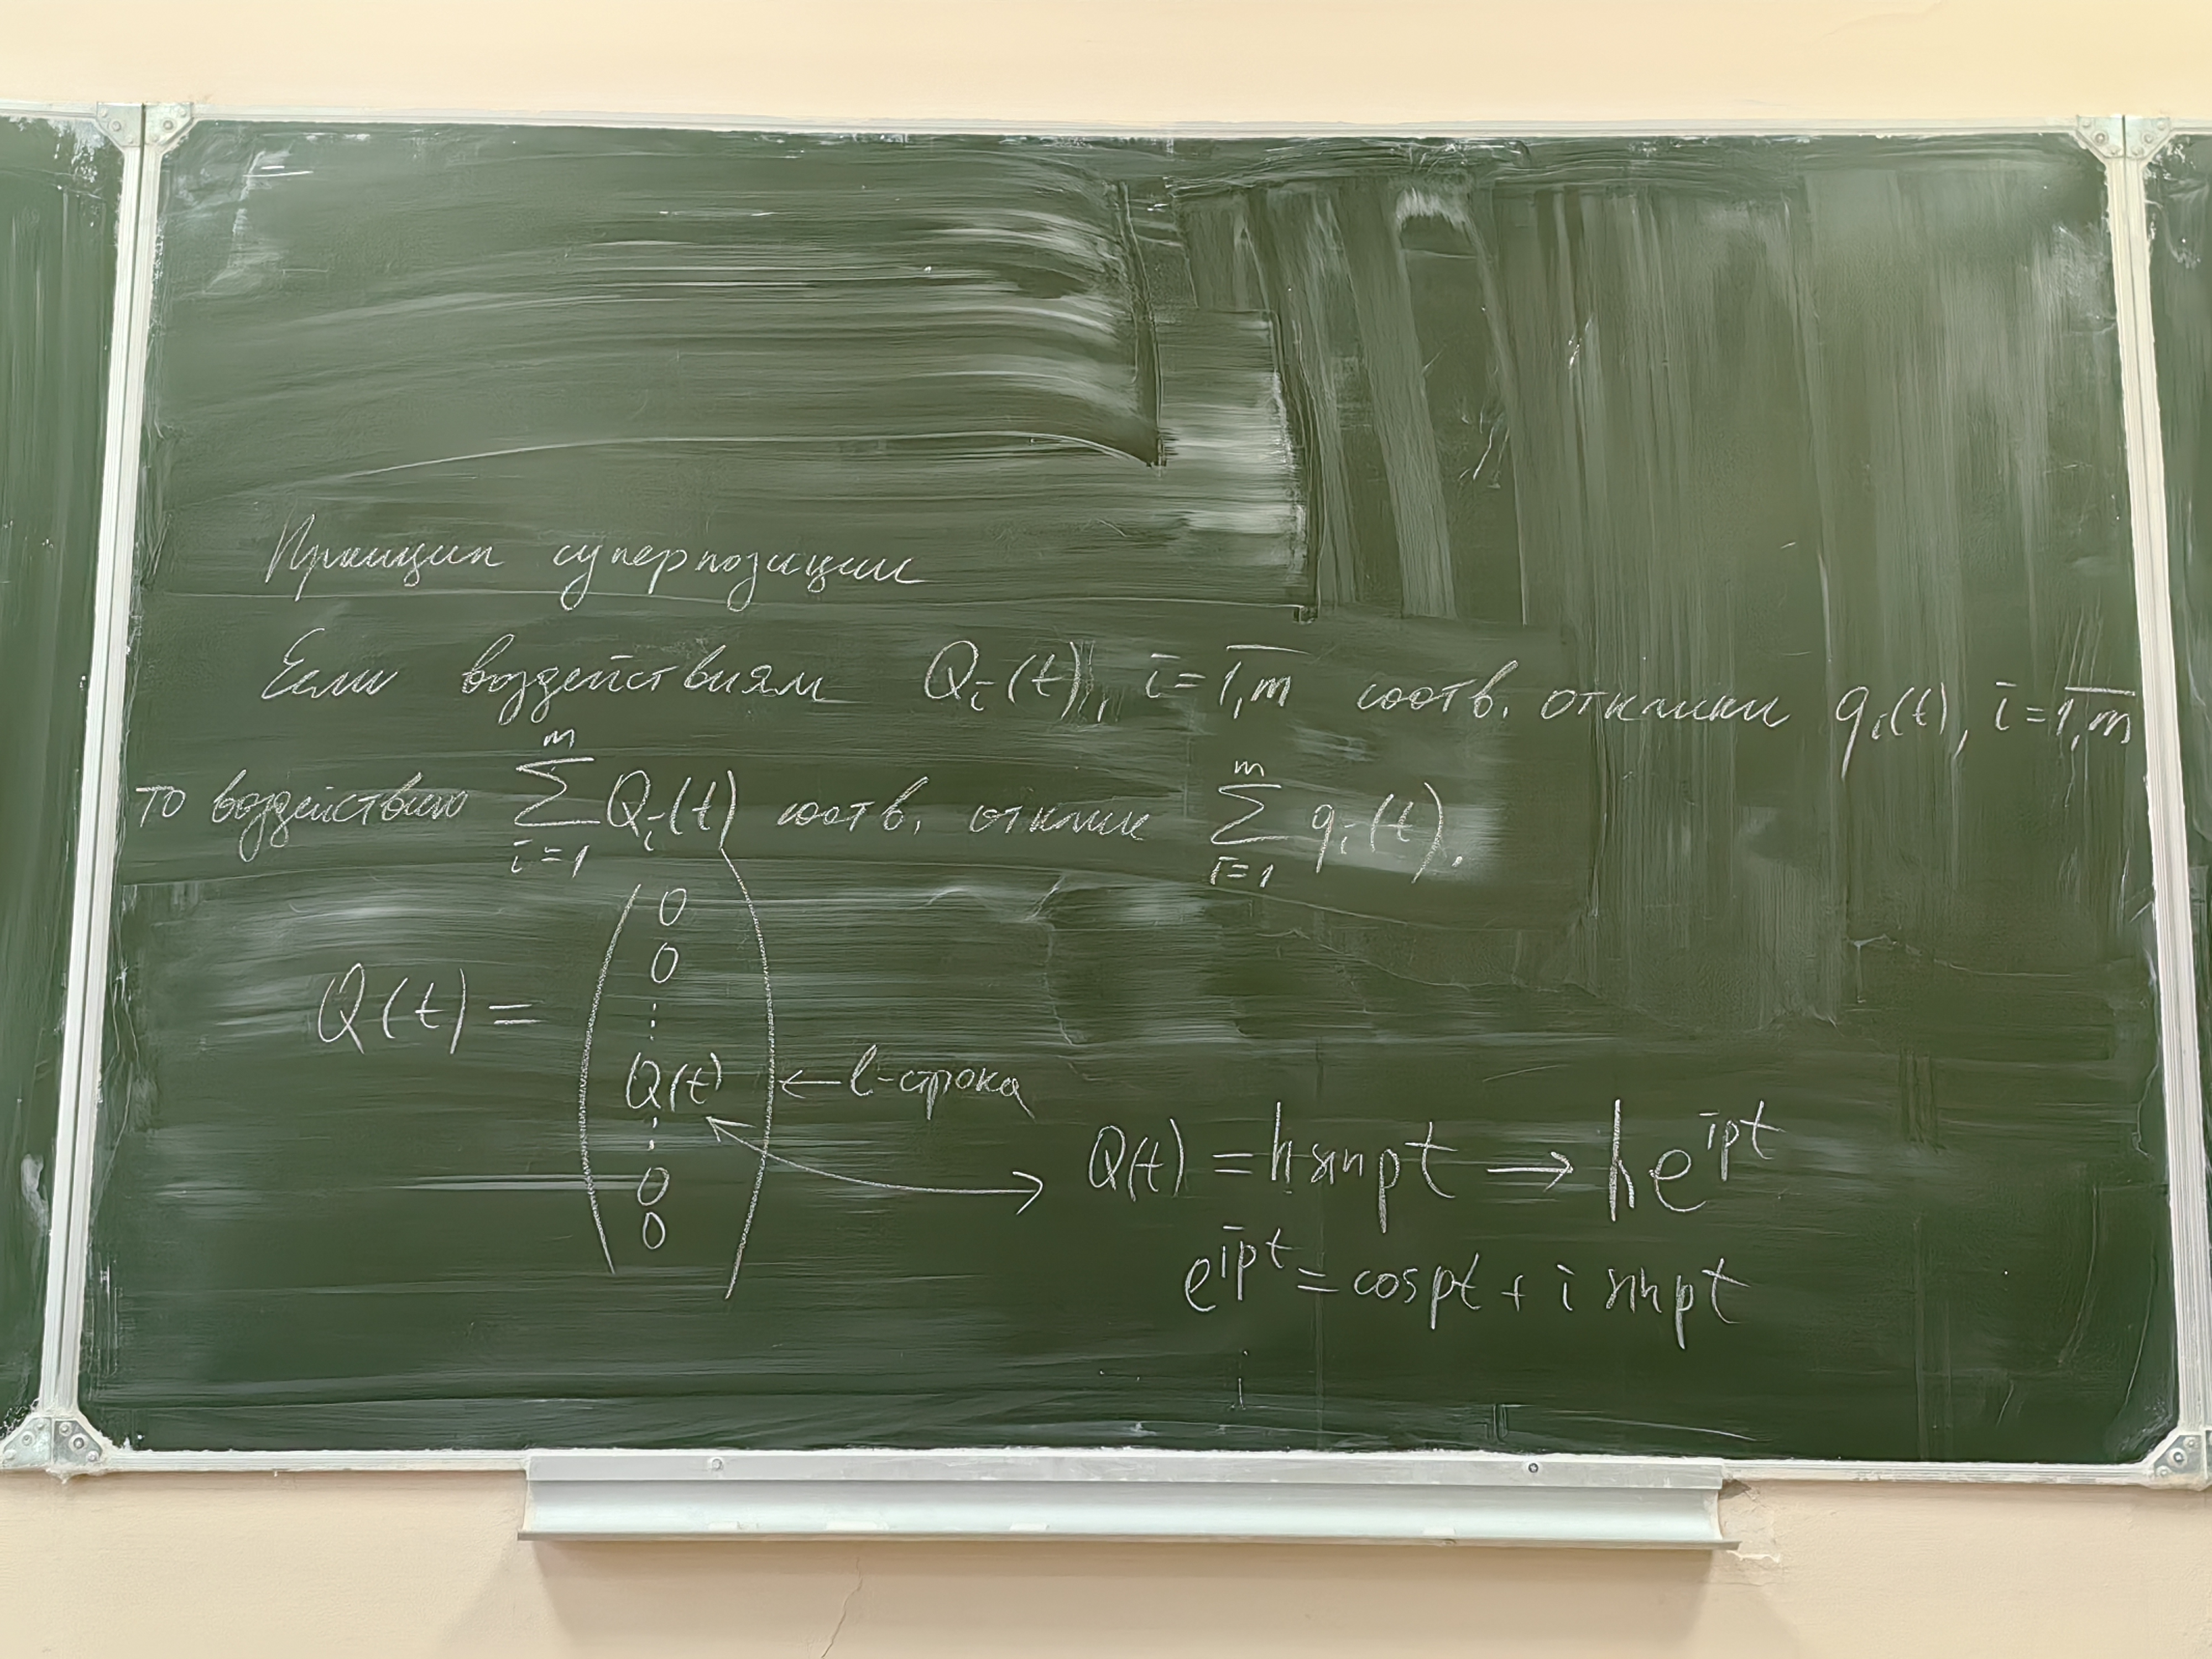 Принцип суперпозиции
Если воздействиям Qᵢ(t), i = 1,m соотв. отклики qᵢ(t), i = 1,m
m
то воздействию ∑ Qᵢ(t) соотв. отклик ∑ qᵢ(t).
i=1 i=1
0
0
⋮
Q(t) =
Q(t) ← l-строка
⋮
Q(t) = h sin pt → h e^{ipt}
0
0
e^{ipt} = cos pt + i sin pt